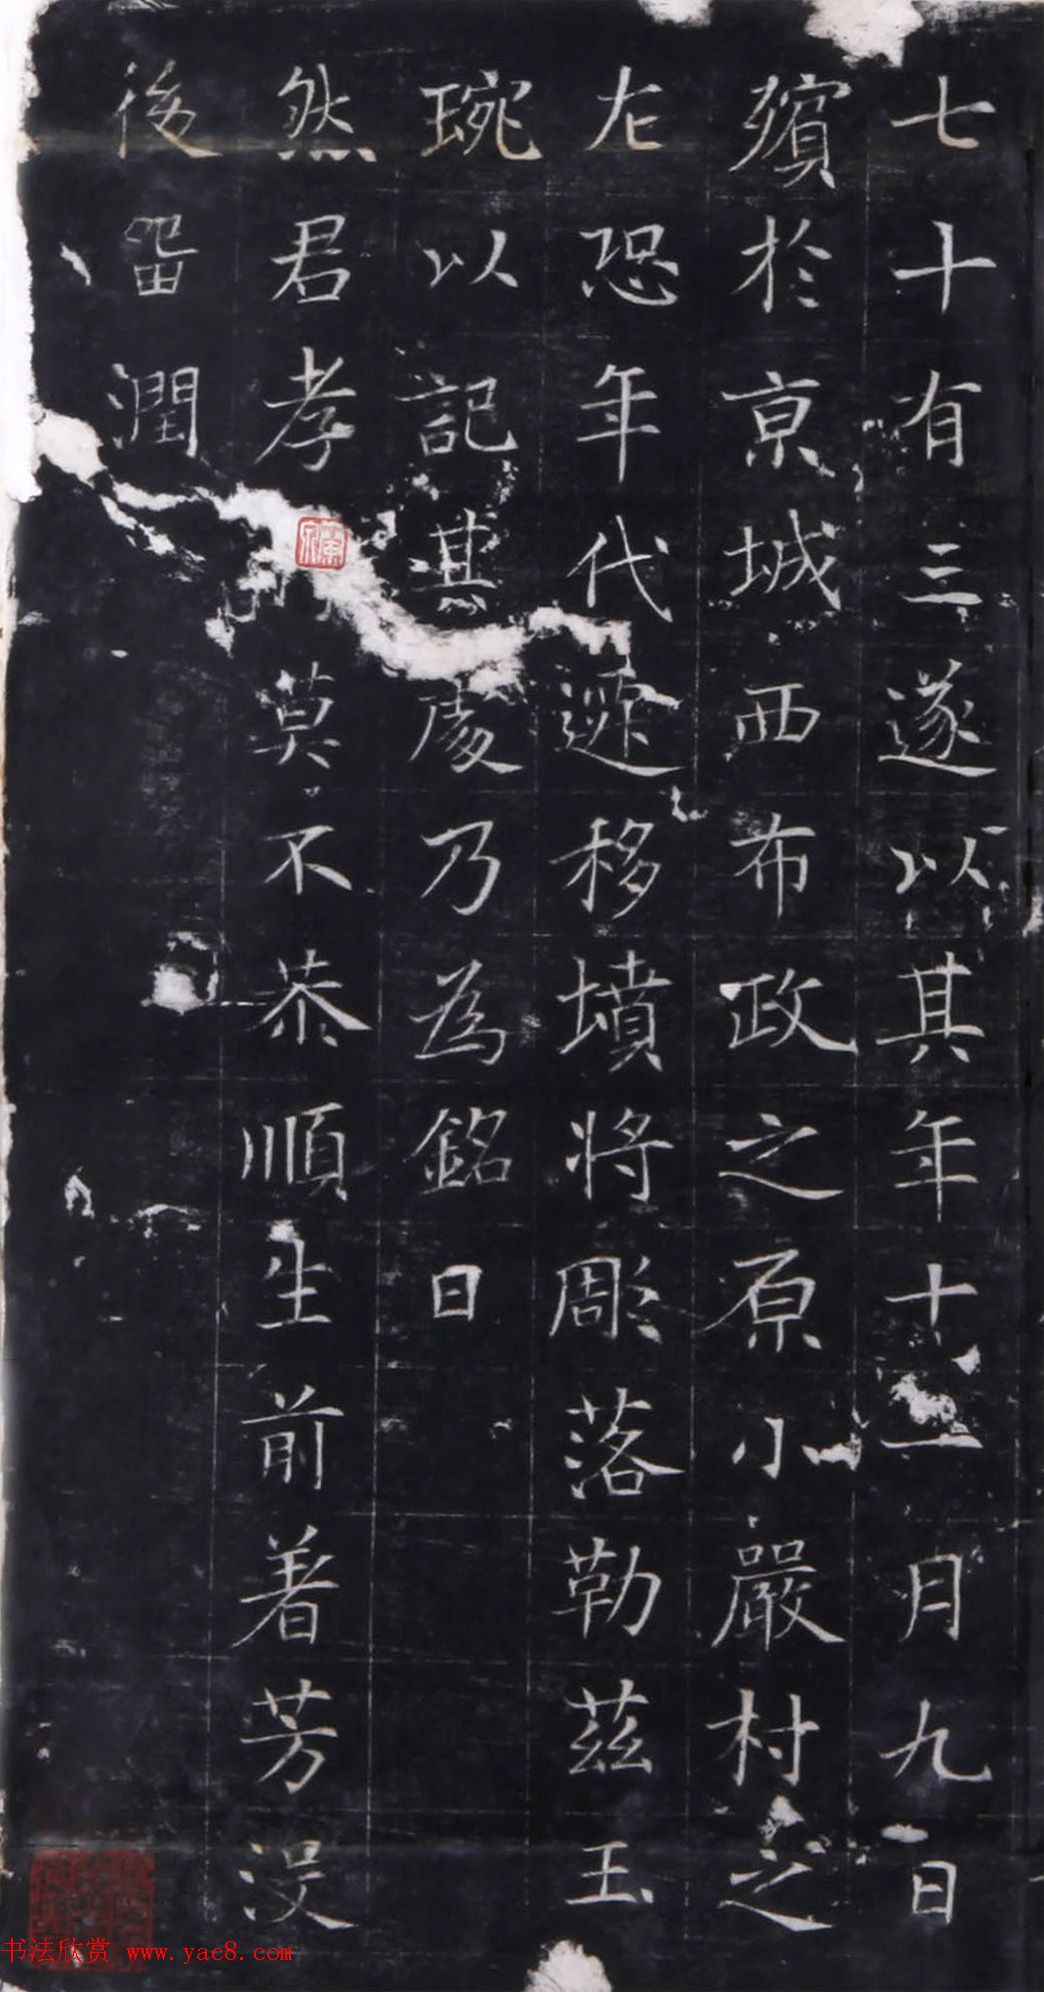 七十有三遂以其年十一月九日
殯於京城西布政之原小嚴村之
左恐年代遷移墳將彫落勒茲玉
琬以記其處乃為銘曰
然君孝莫不恭順生前著芳沒
後留潤
书法欣赏 www.yac8.com